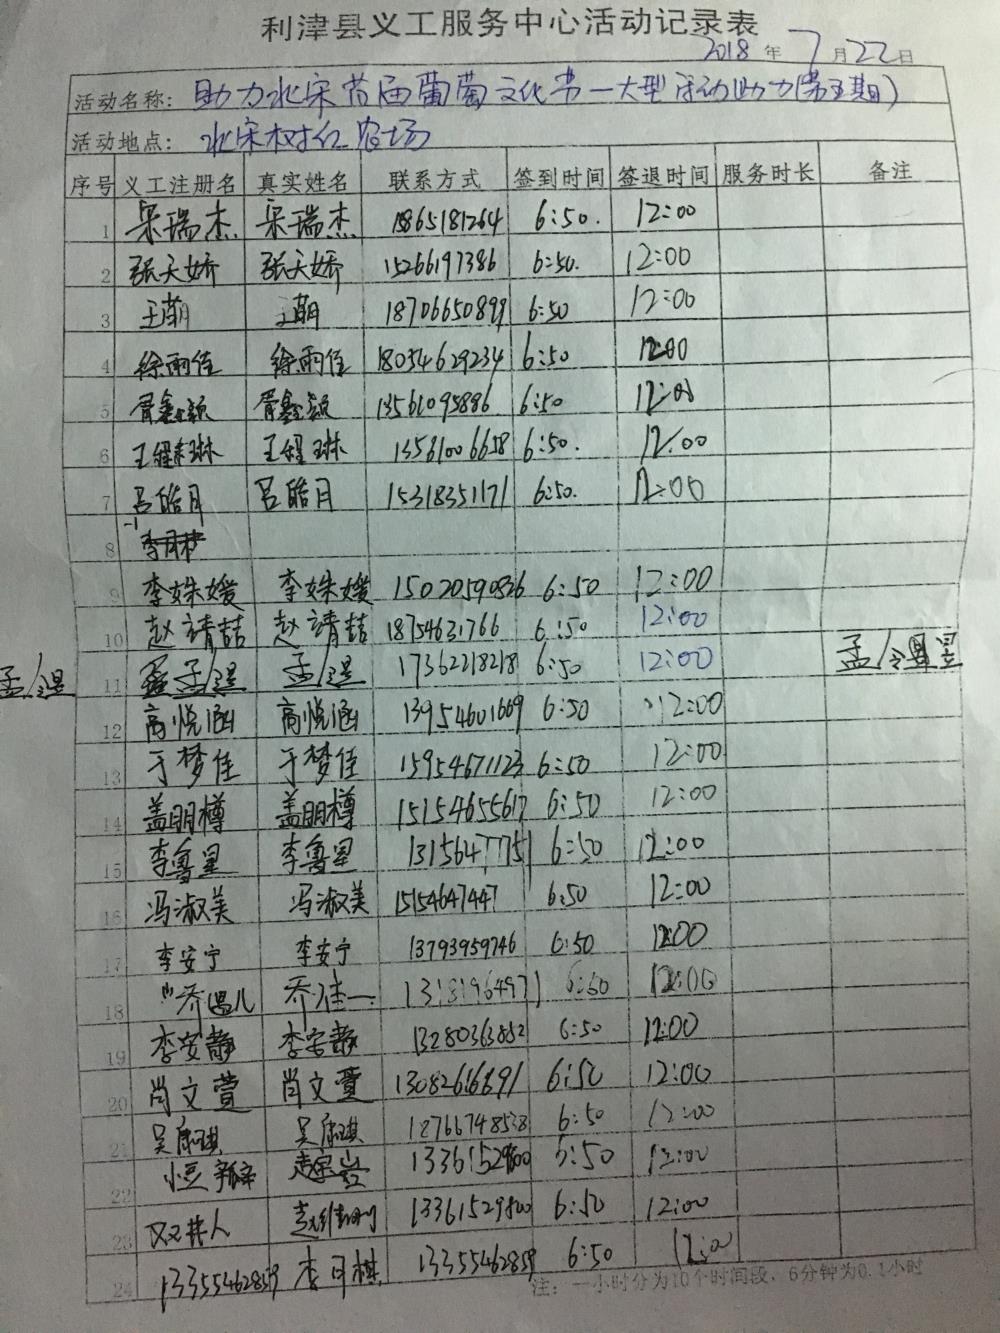 利津县义工服务中心活动记录表
2018 年 7 月 22 日
活动名称: 助力北宋首届葡萄文化节一大型活动助力(第五期)
活动地点: 北宋树仁农场
序号 义工注册名 真实姓名 联系方式 签到时间 签退时间 服务时长 备注
1 梁瑞杰 梁瑞杰 1865181264 6:50. 12:00
2 张天娇 张天娇 15266197386 6:50. 12:00
3 王萌 王萌 18706650899 6:50 12:00
4 徐雨佳 徐雨佳 18054629234 6:50 12:00
5 胥鑫颖 胥鑫颖 13561095886 6:50 12:00
6 王程琳 王程琳 13561006658 6:50. 12:00
7 吕皓月 吕皓月 15318351171 6:50. 12:00
8 李月棋
9 李姝媛 李姝媛 15020590826 6:50 12:00
10 赵靖喆 赵靖喆 18754631766 6:50 12:00
孟 11 孟 孟 17362218218 6:50 12:00 孟
12 高悦涵 高悦涵 13954601669 6:50 12:00
13 于梦佳 于梦佳 15954671123 6:50 12:00
14 盖明樽 盖明樽 15154655617 6:50 12:00
15 李鲁星 李鲁星 13156477751 6:50 12:00
16 冯淑美 冯淑美 15154647447 6:50 12:00
17 李安宁 李安宁 13793959746 6:50 12:00
18 乔 儿 乔佳一 13181964971 6:50 12:00
19 李安静 李安静 13280363852 6:50 12:00
20 肖文萱 肖文萱 13082616691 6:50 12:00
21 吴康琪 吴康琪 18766748538 6:50 12:00
22 小豆瓣 赵 岩 13361529800 6:50 12:00
23 双井人 赵 13361529800 6:50 12:00
24 13355462859 李月棋 13355462859 6:50 12:00
注: 一小时分为10个时间段, 6分钟为0.1小时